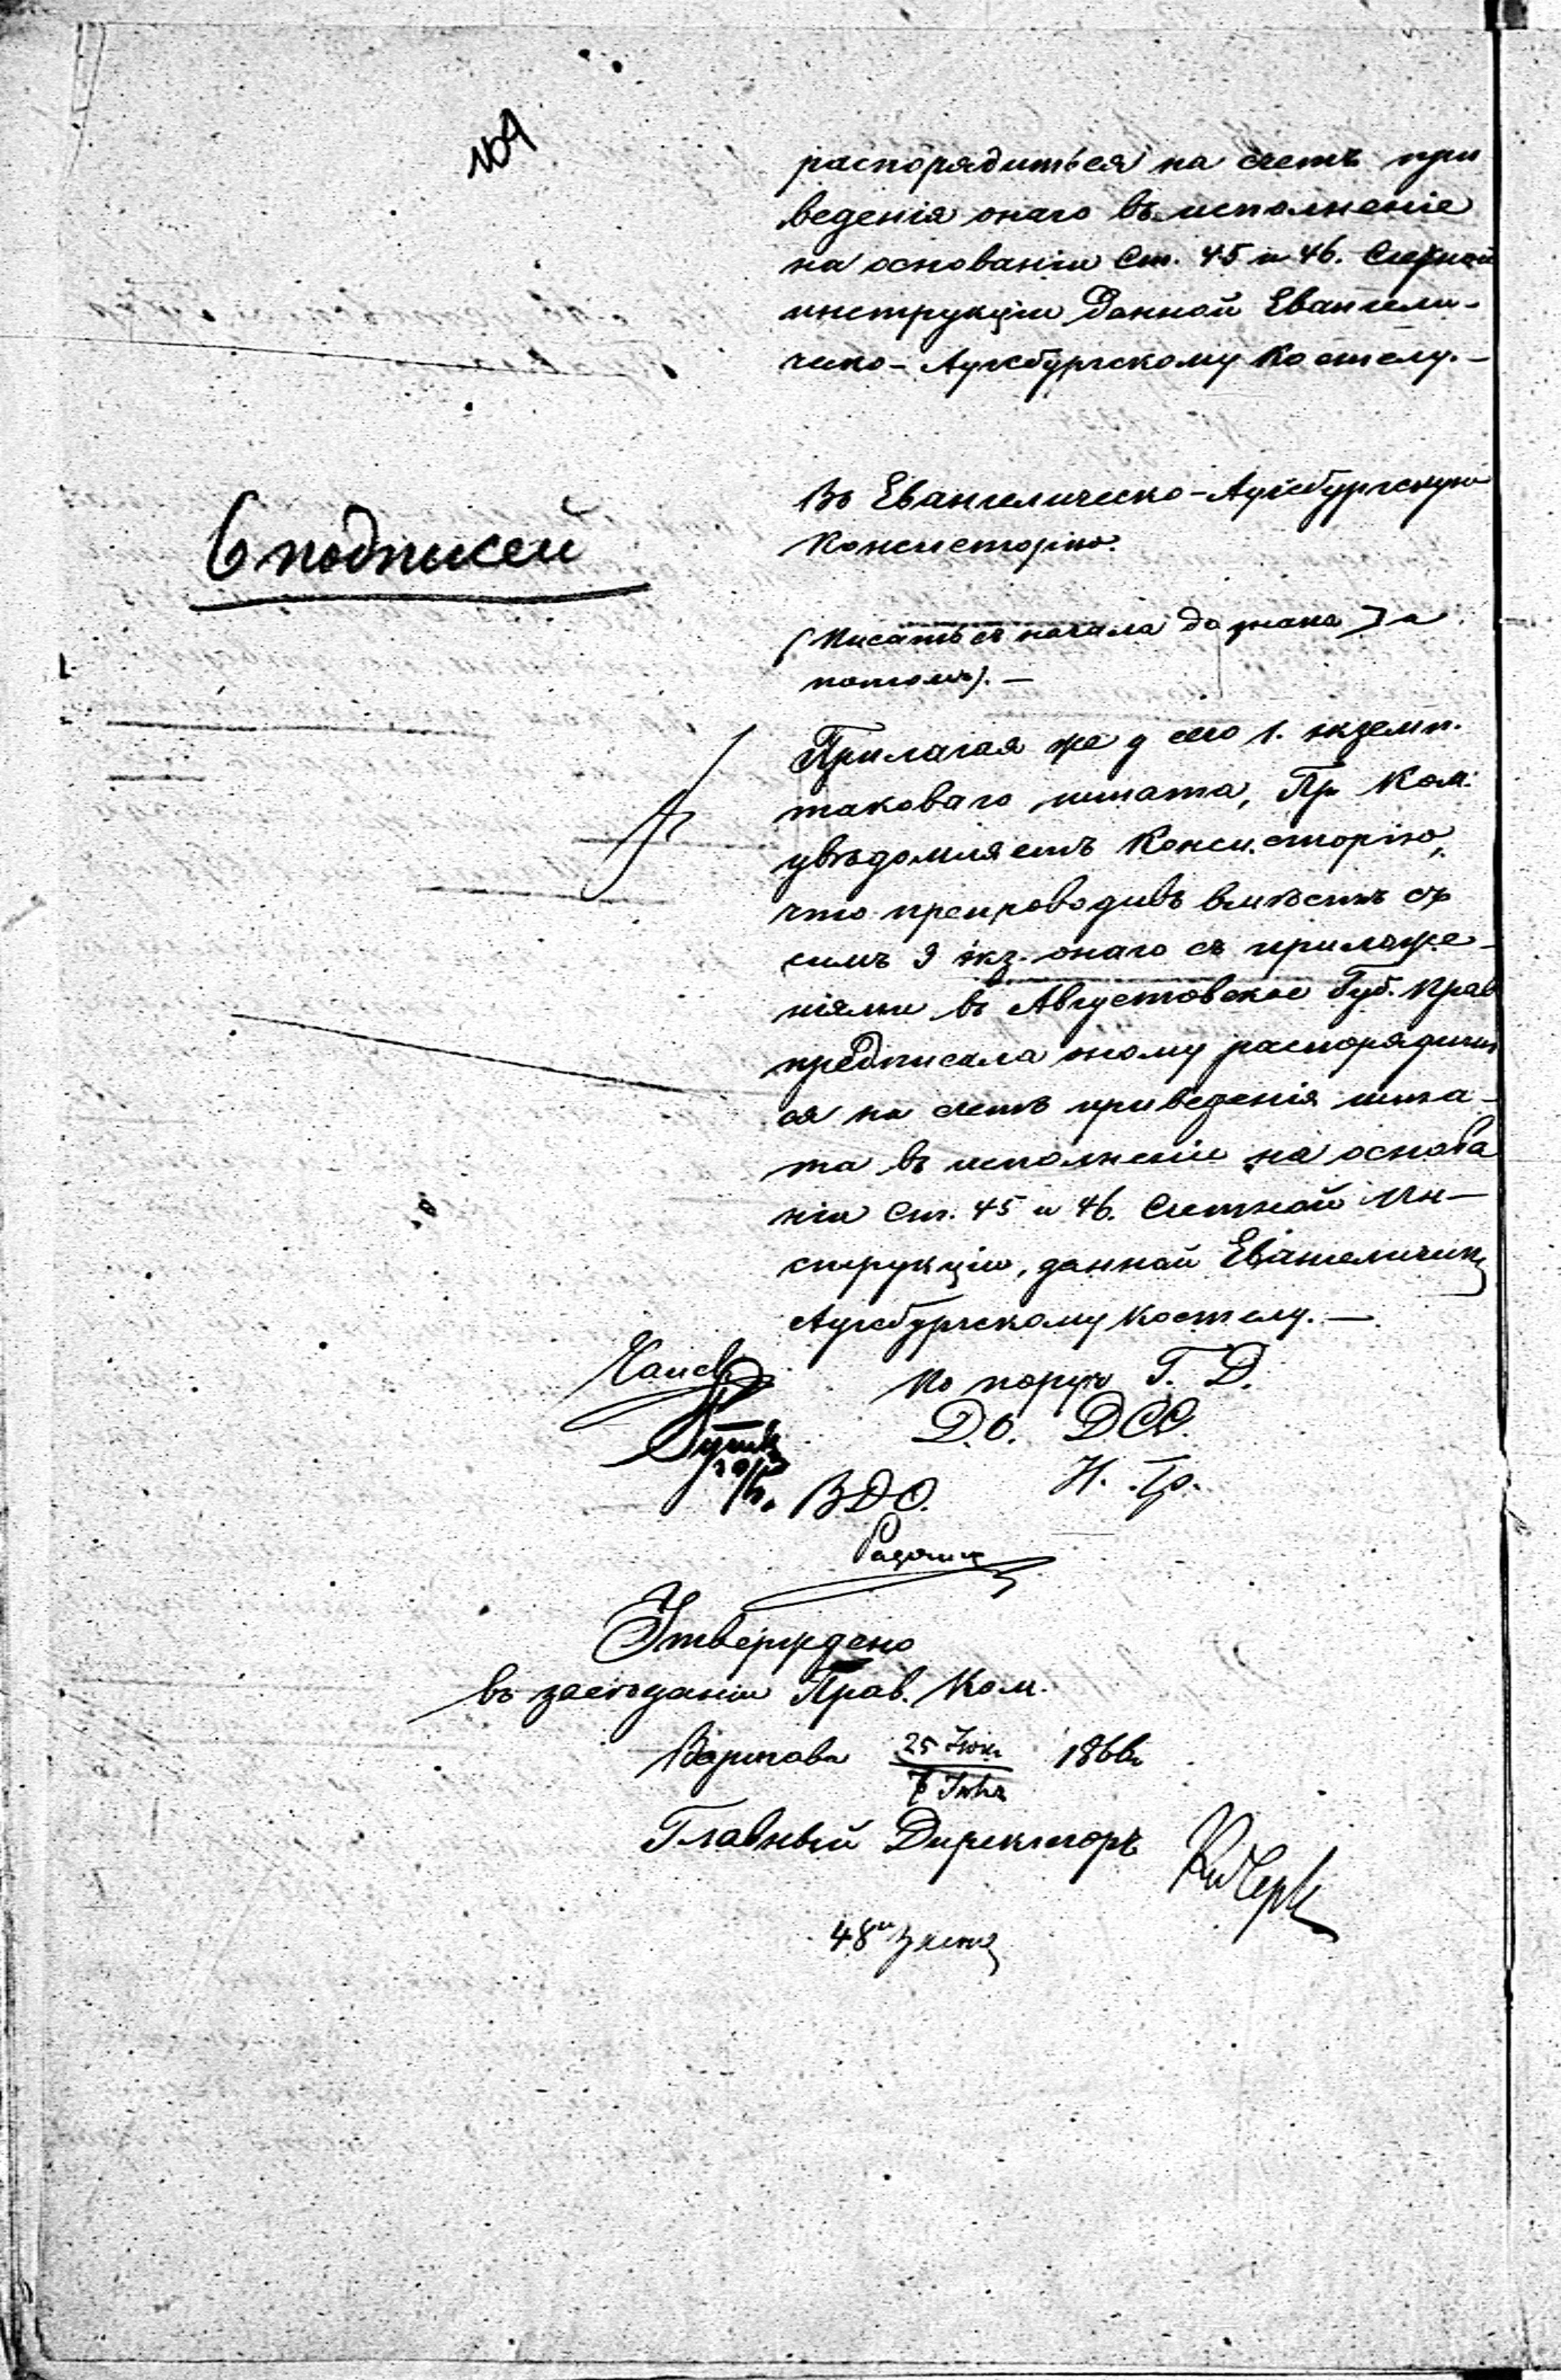 распорядиться на счетъ при
ведения онаго въ исполненіе
на основаніи Ст. 45 и 46. Счетной
инструкціи данной Евангели-
ческо-Аугсбургскому Костелу.—
Въ Евангелическо-Аугсбургскую
Консисторію.
6 подписей
(Писать съ начала до знака ] а
потомъ). —
Прилагая же у сего 1. экземп.
таковаго штата, Пр. Ком.
увѣдомляетъ Консисторію,
что препроводивъ вмѣстѣ съ
симъ 3 экз. онаго съ приложе-
ніями въ Августовское Губ. Прав
предписала оному распорядить
ся на счетъ приведенія шта-
та въ исполненіе на основа
ніи Ст. 45 и 46. Счетной Ин-
струкціи, данной Евангеличек
Аугсбургскому Костелу. —
По поруч Г. Д.
Д. О. ДСС.
Н. Гр.
ВДО.
Утверждено
въ засѣданіи Прав. Ком.
Варшава 25 Іюн. 1866
7 Іюля
Главный Директоръ
48